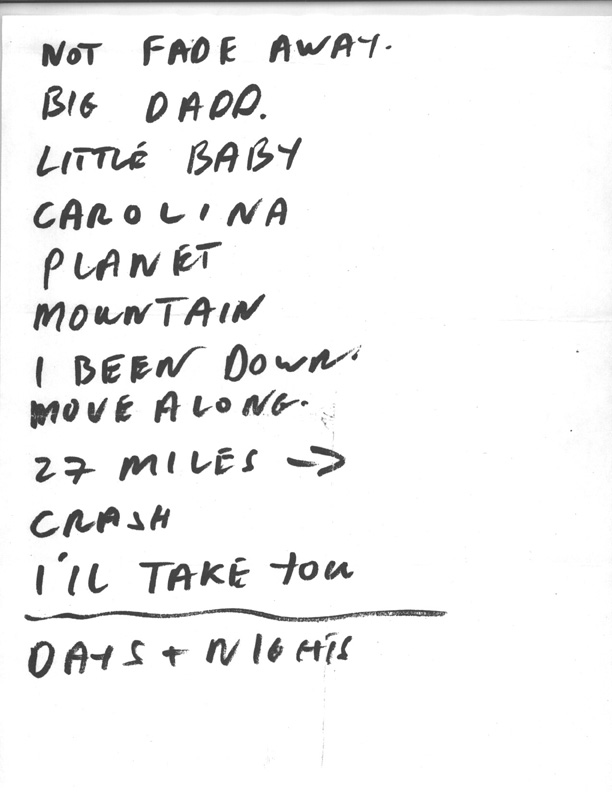 NOT FADE AWAY.
BIG DADD.
LITTLE BABY
CAROLINA
PLANET
MOUNTAIN
I BEEN DOWN.
MOVE ALONG.
27 MILES →
CRASH
I'LL TAKE YOU
DAYS + NIGHTS